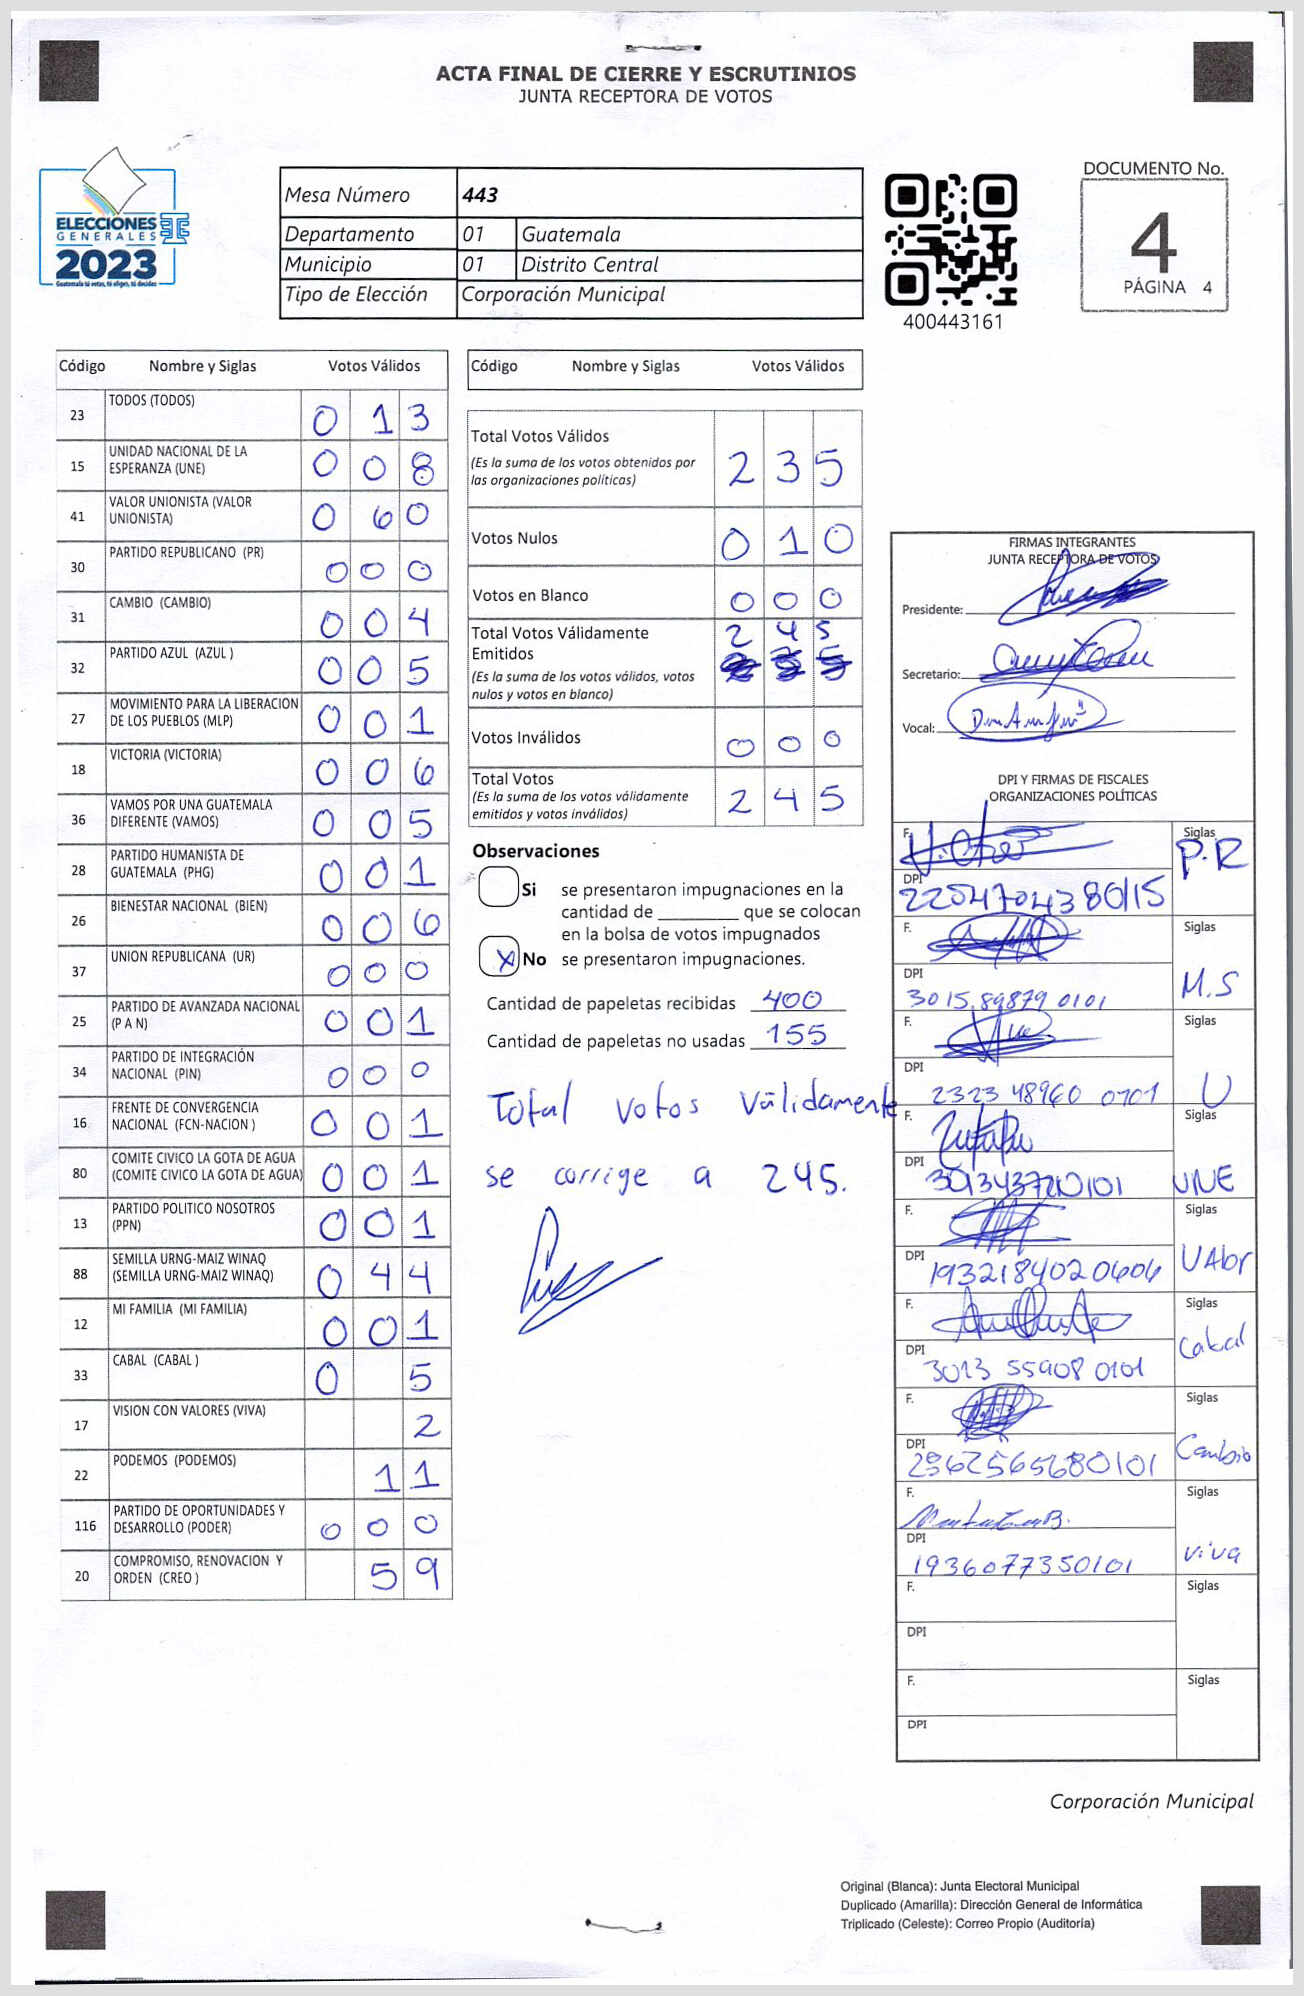 ACTA FINAL DE CIERRE Y ESCRUTINIOS
JUNTA RECEPTORA DE VOTOS
ELECCIONES
GENERALES
2023
Guatemala tú votas, tú eliges, tú decides
Mesa Número 443
Departamento 01 Guatemala
Municipio 01 Distrito Central
Tipo de Elección Corporación Municipal
400443161
DOCUMENTO No.
4
PÁGINA 4
Código Nombre y Siglas Votos Válidos
23 TODOS (TODOS) 0 1 3
15 UNIDAD NACIONAL DE LA ESPERANZA (UNE) 0 0 8
41 VALOR UNIONISTA (VALOR UNIONISTA) 0 6 0
30 PARTIDO REPUBLICANO (PR) 0 0 0
31 CAMBIO (CAMBIO) 0 0 4
32 PARTIDO AZUL (AZUL ) 0 0 5
27 MOVIMIENTO PARA LA LIBERACION DE LOS PUEBLOS (MLP) 0 0 1
18 VICTORIA (VICTORIA) 0 0 6
36 VAMOS POR UNA GUATEMALA DIFERENTE (VAMOS) 0 0 5
28 PARTIDO HUMANISTA DE GUATEMALA (PHG) 0 0 1
26 BIENESTAR NACIONAL (BIEN) 0 0 6
37 UNION REPUBLICANA (UR) 0 0 0
25 PARTIDO DE AVANZADA NACIONAL (P A N) 0 0 1
34 PARTIDO DE INTEGRACIÓN NACIONAL (PIN) 0 0 0
16 FRENTE DE CONVERGENCIA NACIONAL (FCN-NACION ) 0 0 1
80 COMITE CIVICO LA GOTA DE AGUA (COMITE CIVICO LA GOTA DE AGUA) 0 0 1
13 PARTIDO POLITICO NOSOTROS (PPN) 0 0 1
88 SEMILLA URNG-MAIZ WINAQ (SEMILLA URNG-MAIZ WINAQ) 0 4 4
12 MI FAMILIA (MI FAMILIA) 0 0 1
33 CABAL (CABAL ) 0 5
17 VISION CON VALORES (VIVA) 2
22 PODEMOS (PODEMOS) 1 1
116 PARTIDO DE OPORTUNIDADES Y DESARROLLO (PODER) 0 0 0
20 COMPROMISO, RENOVACION Y ORDEN (CREO ) 5 9
Código Nombre y Siglas Votos Válidos
Total Votos Válidos 2 3 5
(Es la suma de los votos obtenidos por
las organizaciones políticas)
Votos Nulos 0 1 0
Votos en Blanco 0 0 0
Total Votos Válidamente 2 4 5
Emitidos
(Es la suma de los votos válidos, votos
nulos y votos en blanco)
Votos Inválidos 0 0 0
Total Votos 2 4 5
(Es la suma de los votos válidamente
emitidos y votos inválidos)
Observaciones
Si se presentaron impugnaciones en la
cantidad de ________ que se colocan
en la bolsa de votos impugnados
X No se presentaron impugnaciones.
Cantidad de papeletas recibidas 400
Cantidad de papeletas no usadas 155
Total votos válidamente
se corrige a 245.
FIRMAS INTEGRANTES
JUNTA RECEPTORA DE VOTOS
Presidente:
Secretario:
Vocal:
DPI Y FIRMAS DE FISCALES
ORGANIZACIONES POLÍTICAS
F. Siglas P.R
DPI
F. Siglas M.S
DPI 3015 89879 0101
F. Siglas U
DPI 2323 48960 0701
F. Siglas UNE
DPI
F. Siglas VAlor
DPI 1932184020606
F. Siglas Cabal
DPI 3013 55908 0101
F. Siglas Cambio
DPI
F. Siglas viva
DPI 1936077350101
F. Siglas
DPI
F. Siglas
DPI
Corporación Municipal
Original (Blanca): Junta Electoral Municipal
Duplicado (Amarilla): Dirección General de Informática
Triplicado (Celeste): Correo Propio (Auditoría)